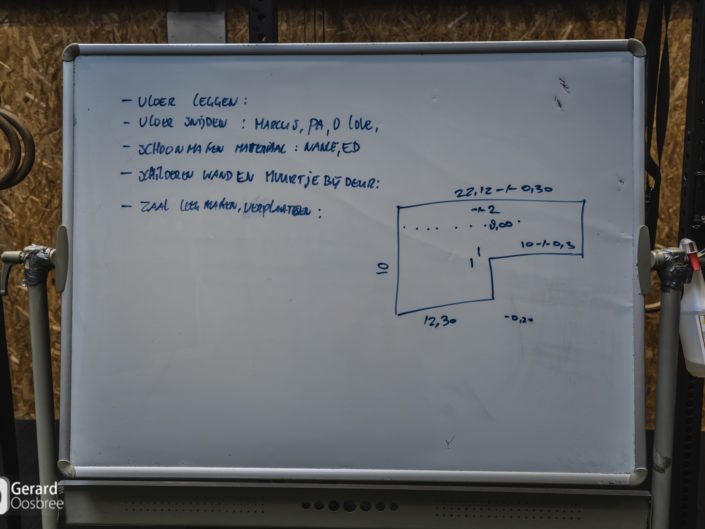 - VLOER LEGGEN :
- VLOER SNIJDEN : MARCUS, PA,
- SCHOONMAKEN MATERIAAL : NANE, ED
- SCHILDEREN WAND EN MUURTJE BIJ DEUR:
- ZAAL LEEG MAKEN, VERPLAATSEN :
22,12 -1- 0,30
-1- 2
8,00
10 -1- 0,3
10
12,30
-0,20
Gerard
Oosbree